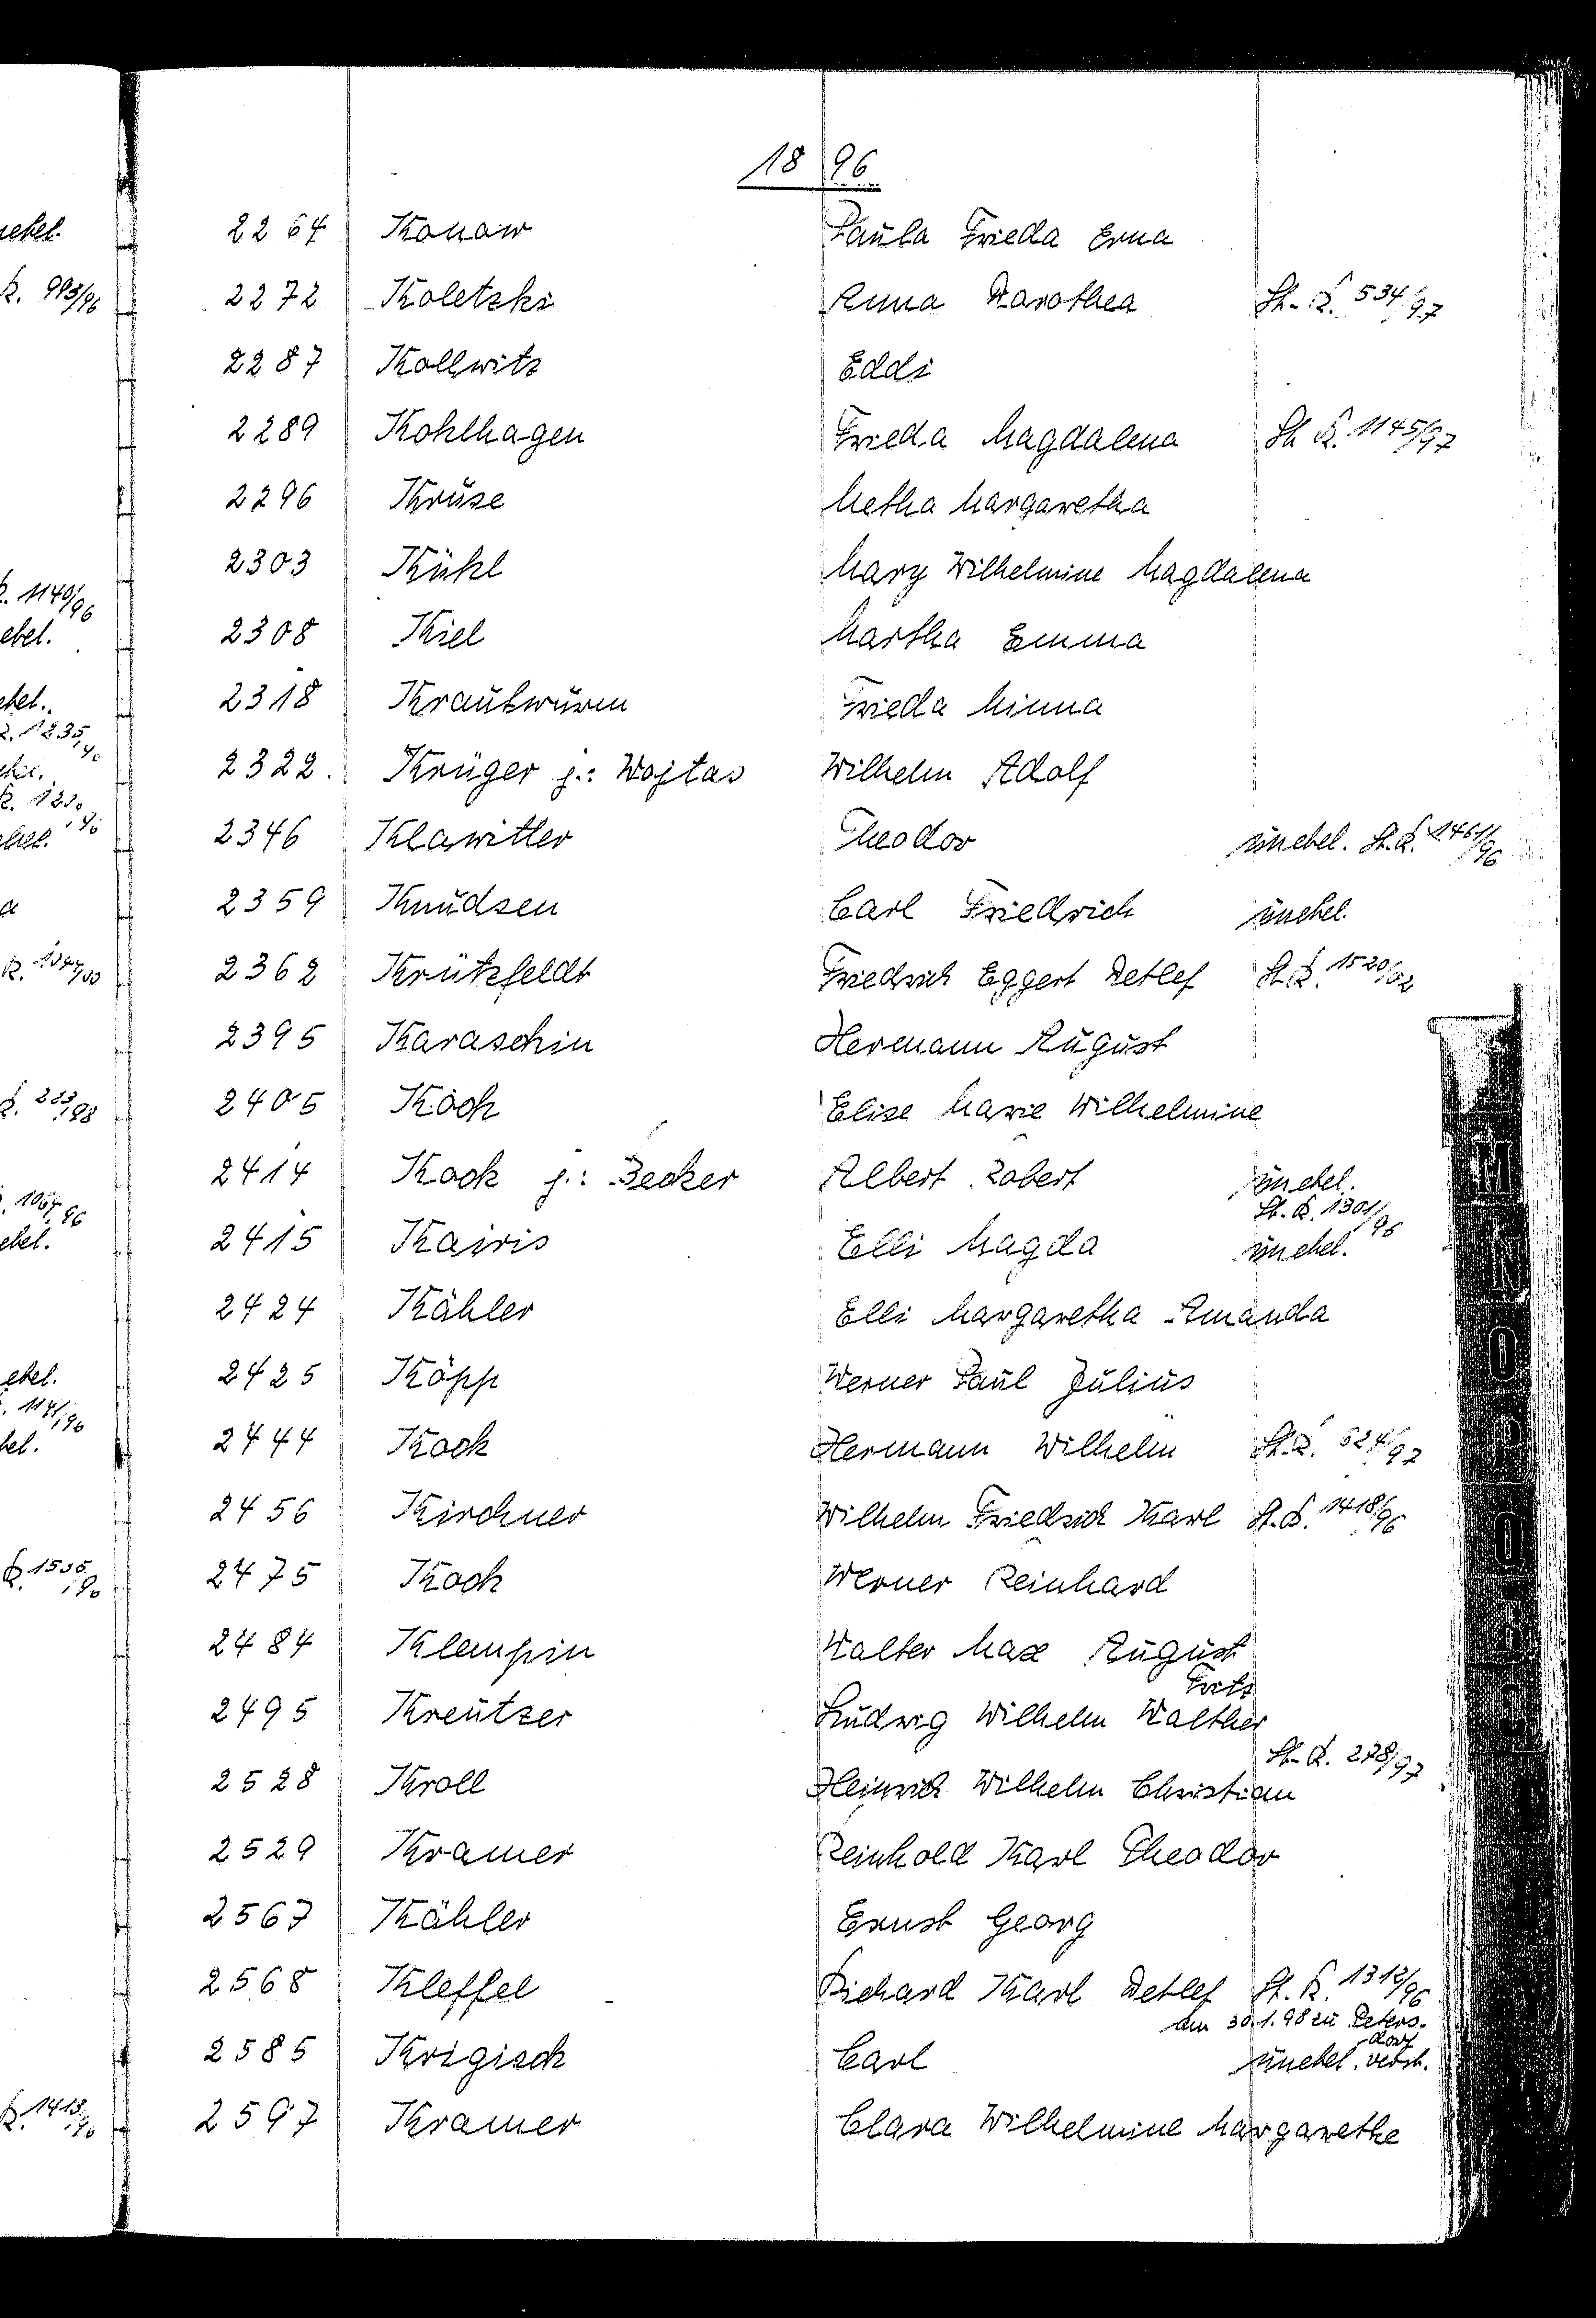 1896
2264 Konow Paula Frieda Erna
2272 Koletzki Anna Dorothea St. R. 534/97
2287 Kollwitz Eddi
2289 Kohlhagen Frieda Magdalena St. R. 1145/97
2296 Kruse Metha Margaretha
2303 Kühl Mary Wilhelmine Magdalena
2308 Kiel Martha Emma
2318 Krautwurm Frieda Minna
2322. Krüger j.: Wojtas Wilhelm Adolf
2346 Klawitter Theodor unehel. St. R. 1461/96
2359 Knudsen Carl Friedrich unehel.
2362 Krützfeldt Friedrich Eggert Detlef St. R. 1520/02
2395 Karaschin Hermann August
2405 Koch Elise Marie Wilhelmine
2414 Kock j.: Becker Albert Robert unehel.
St. R. 1301/96
2415 Kairis Elli Magda unehel.
2424 Kähler Elli Margaretha Amanda
2425 Köpp Werner Paul Julius
2444 Kock Hermann Wilhelm St. R. 624/97
2456 Kirchner Wilhelm Friedrich Karl St. R. 1418/96
2475 Koch Werner Reinhard
2484 Klempin Walter Max August
Fritz
2495 Kreutzer Ludwig Wilhelm Walther
St. R. 278/97
2528 Kroll Heinrich Wilhelm Christian
2529 Kramer Reinhold Karl Theodor
2567 Kähler Ernst Georg
2568 Kleffel Richard Karl Detlef St. R. 1312/96
am 30.1.98 zu Peters-
dorf
2585 Krigisch Carl unehel. verst.
2597 Kramer Clara Wilhelmine Margarethe
M
N
O
P
Q
R
S